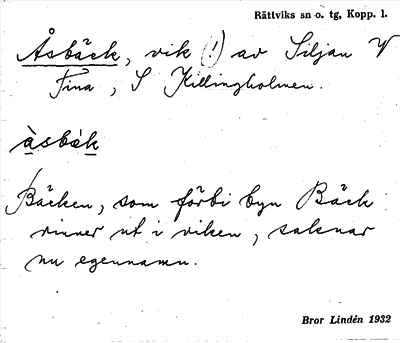 Rättviks sn o. tg, Kopp. l.
Åsbäck, vik (!) av Siljan V
Fina, S Killingholmen.
àsbák
Bäcken, som förbi byn Bäck
rinner ut i viken, saknar
nu egennamn.
Bror Lindén 1932